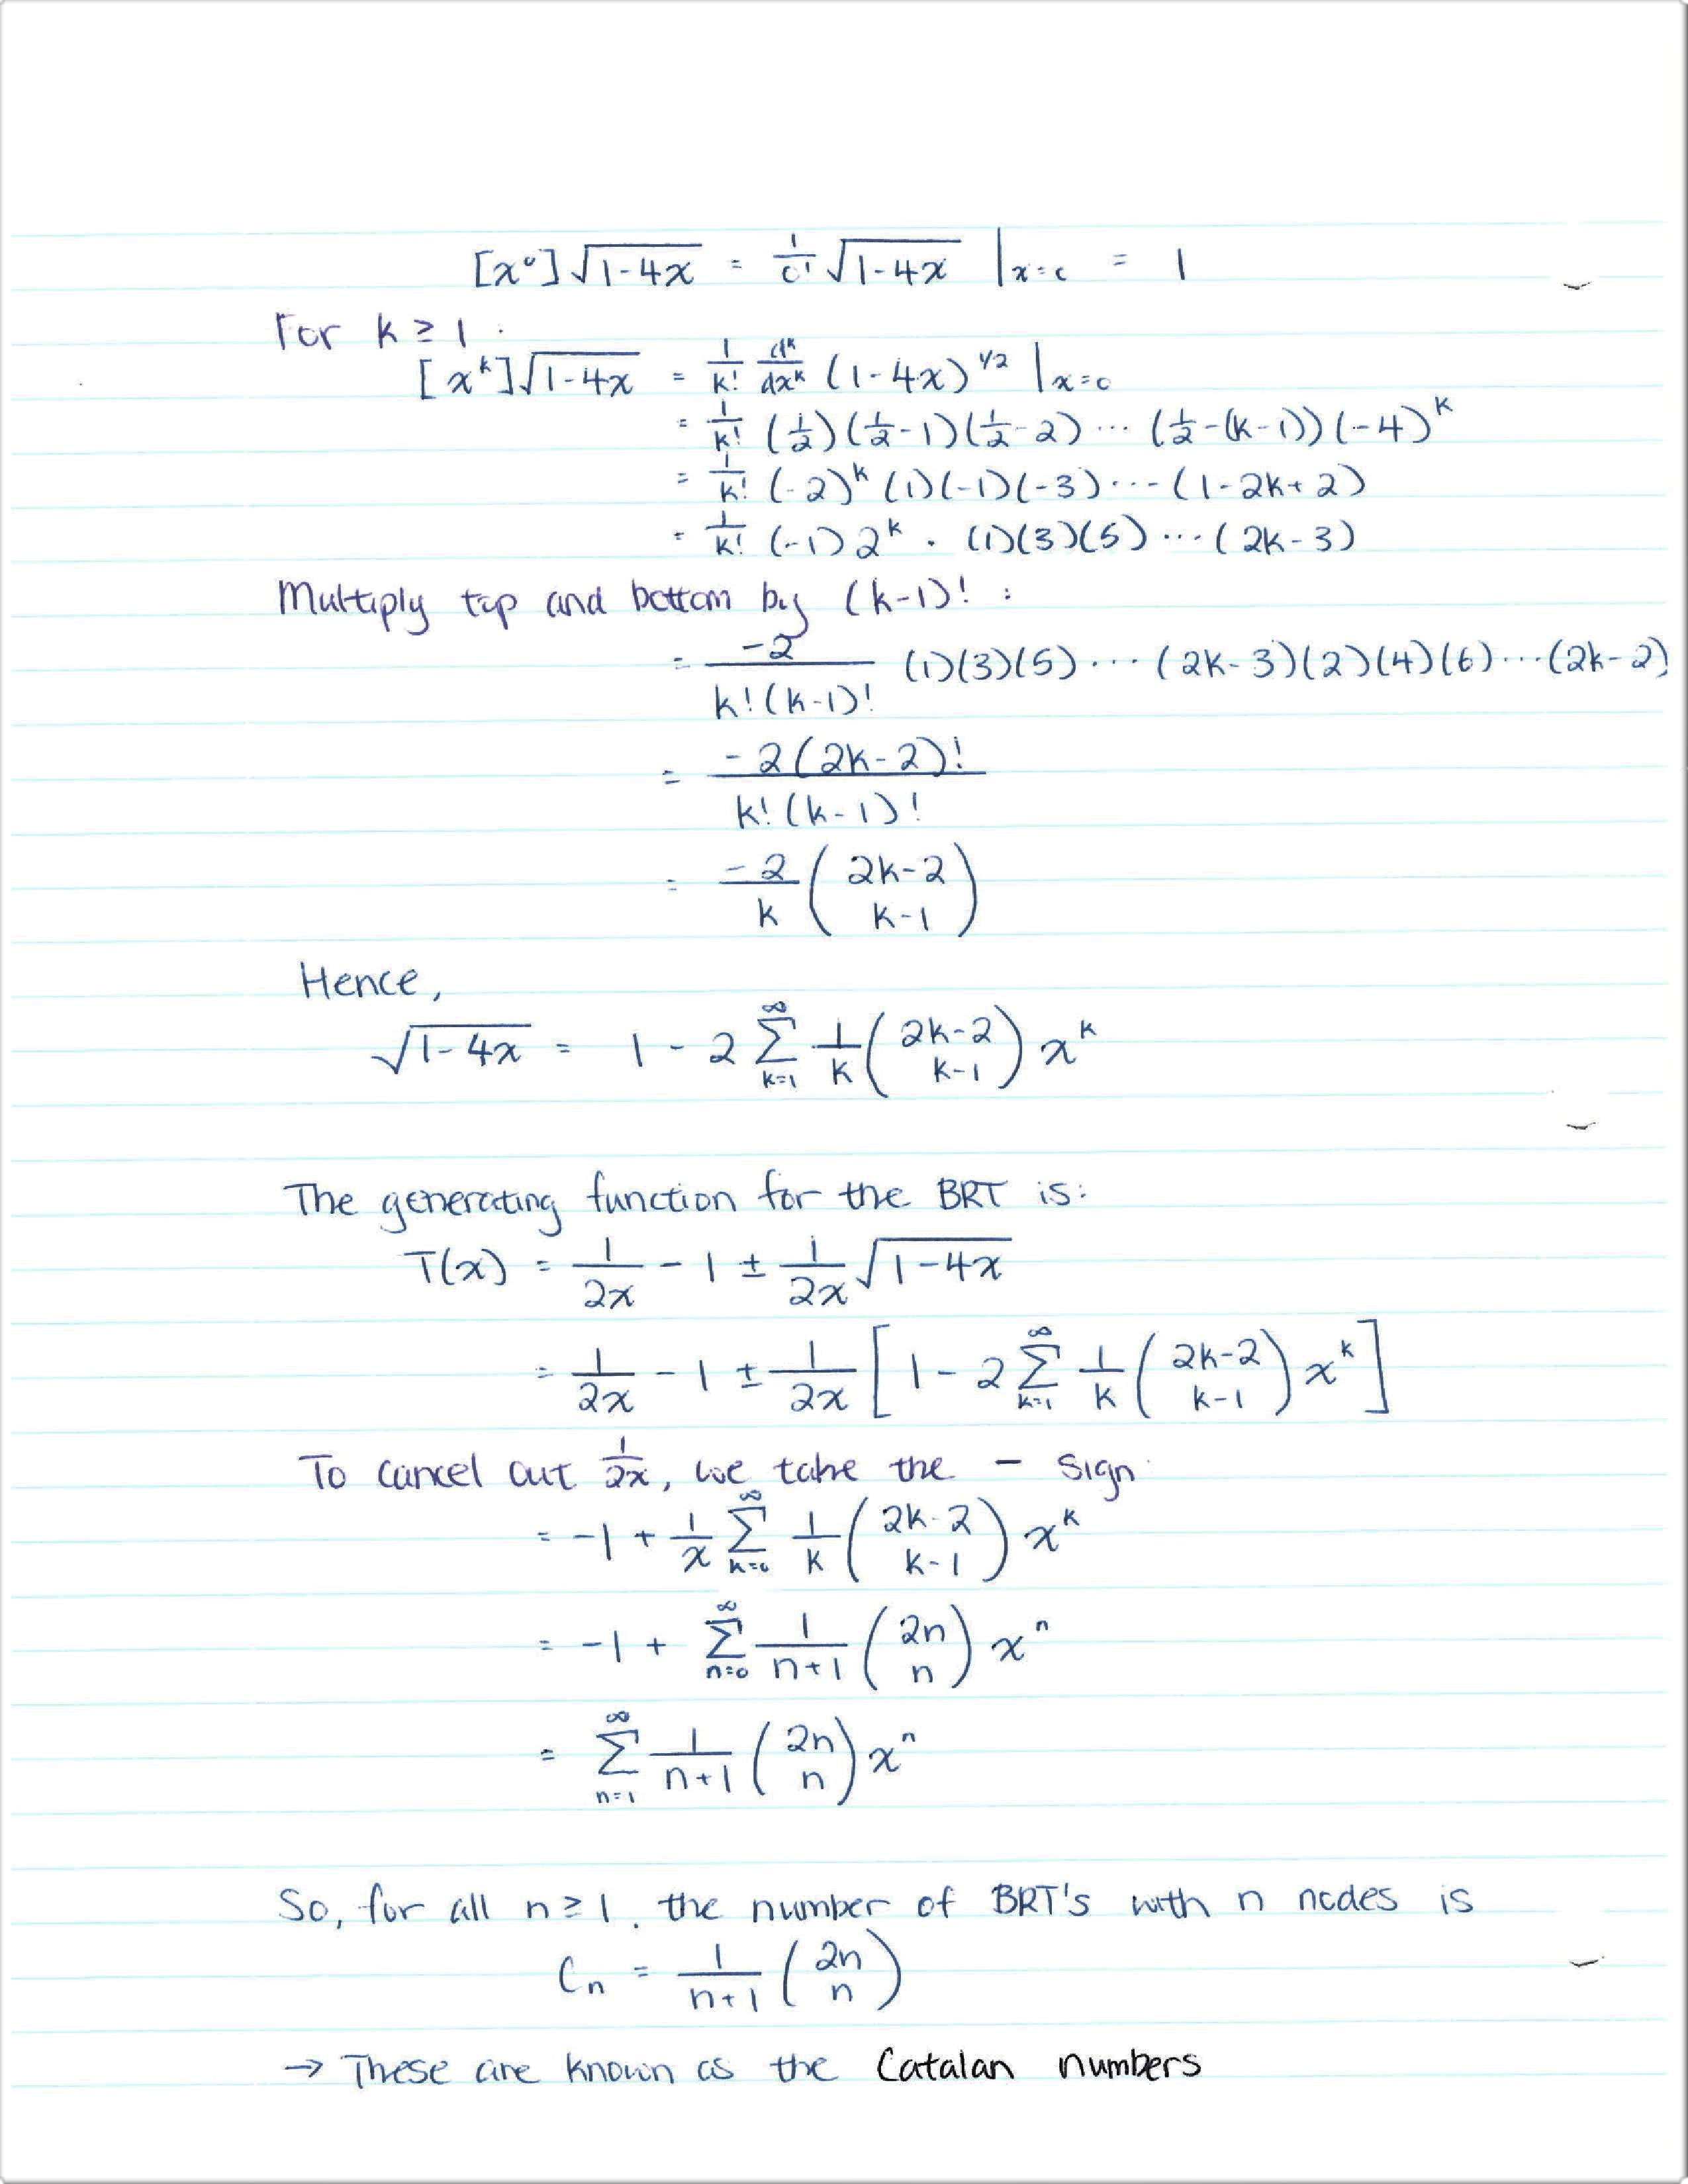 [x⁰]√(1-4x) = 1/0! √(1-4x) |x=0 = 1
For k ≥ 1 :
[x^k]√(1-4x) = 1/k! d^k/dx^k (1-4x)^(1/2) |x=0
= 1/k! (1/2)(1/2-1)(1/2-2) ··· (1/2-(k-1))(-4)^k
= 1/k! (-2)^k (1)(-1)(-3) ··· (1-2k+2)
= 1/k! (-1) 2^k · (1)(3)(5) ··· (2k-3)
Multiply top and bottom by (k-1)! :
= -2/(k!(k-1)!) (1)(3)(5) ··· (2k-3)(2)(4)(6) ··· (2k-2)
= -2(2k-2)!/(k!(k-1)!)
= -2/k (2k-2 k-1)
Hence,
√(1-4x) = 1 - 2 ∑_{k=1}^∞ 1/k (2k-2 k-1) x^k
The generating function for the BRT is:
T(x) = 1/2x - 1 ± 1/2x √(1-4x)
= 1/2x - 1 ± 1/2x [1 - 2 ∑_{k=1}^∞ 1/k (2k-2 k-1) x^k]
To cancel out 1/2x, we take the - sign
= -1 + 1/x ∑_{k=0}^∞ 1/k (2k-2 k-1) x^k
= -1 + ∑_{n=0}^∞ 1/(n+1) (2n n) x^n
= ∑_{n=1}^∞ 1/(n+1) (2n n) x^n
So, for all n ≥ 1, the number of BRT's with n nodes is
Cn = 1/(n+1) (2n n)
→ These are known as the Catalan numbers